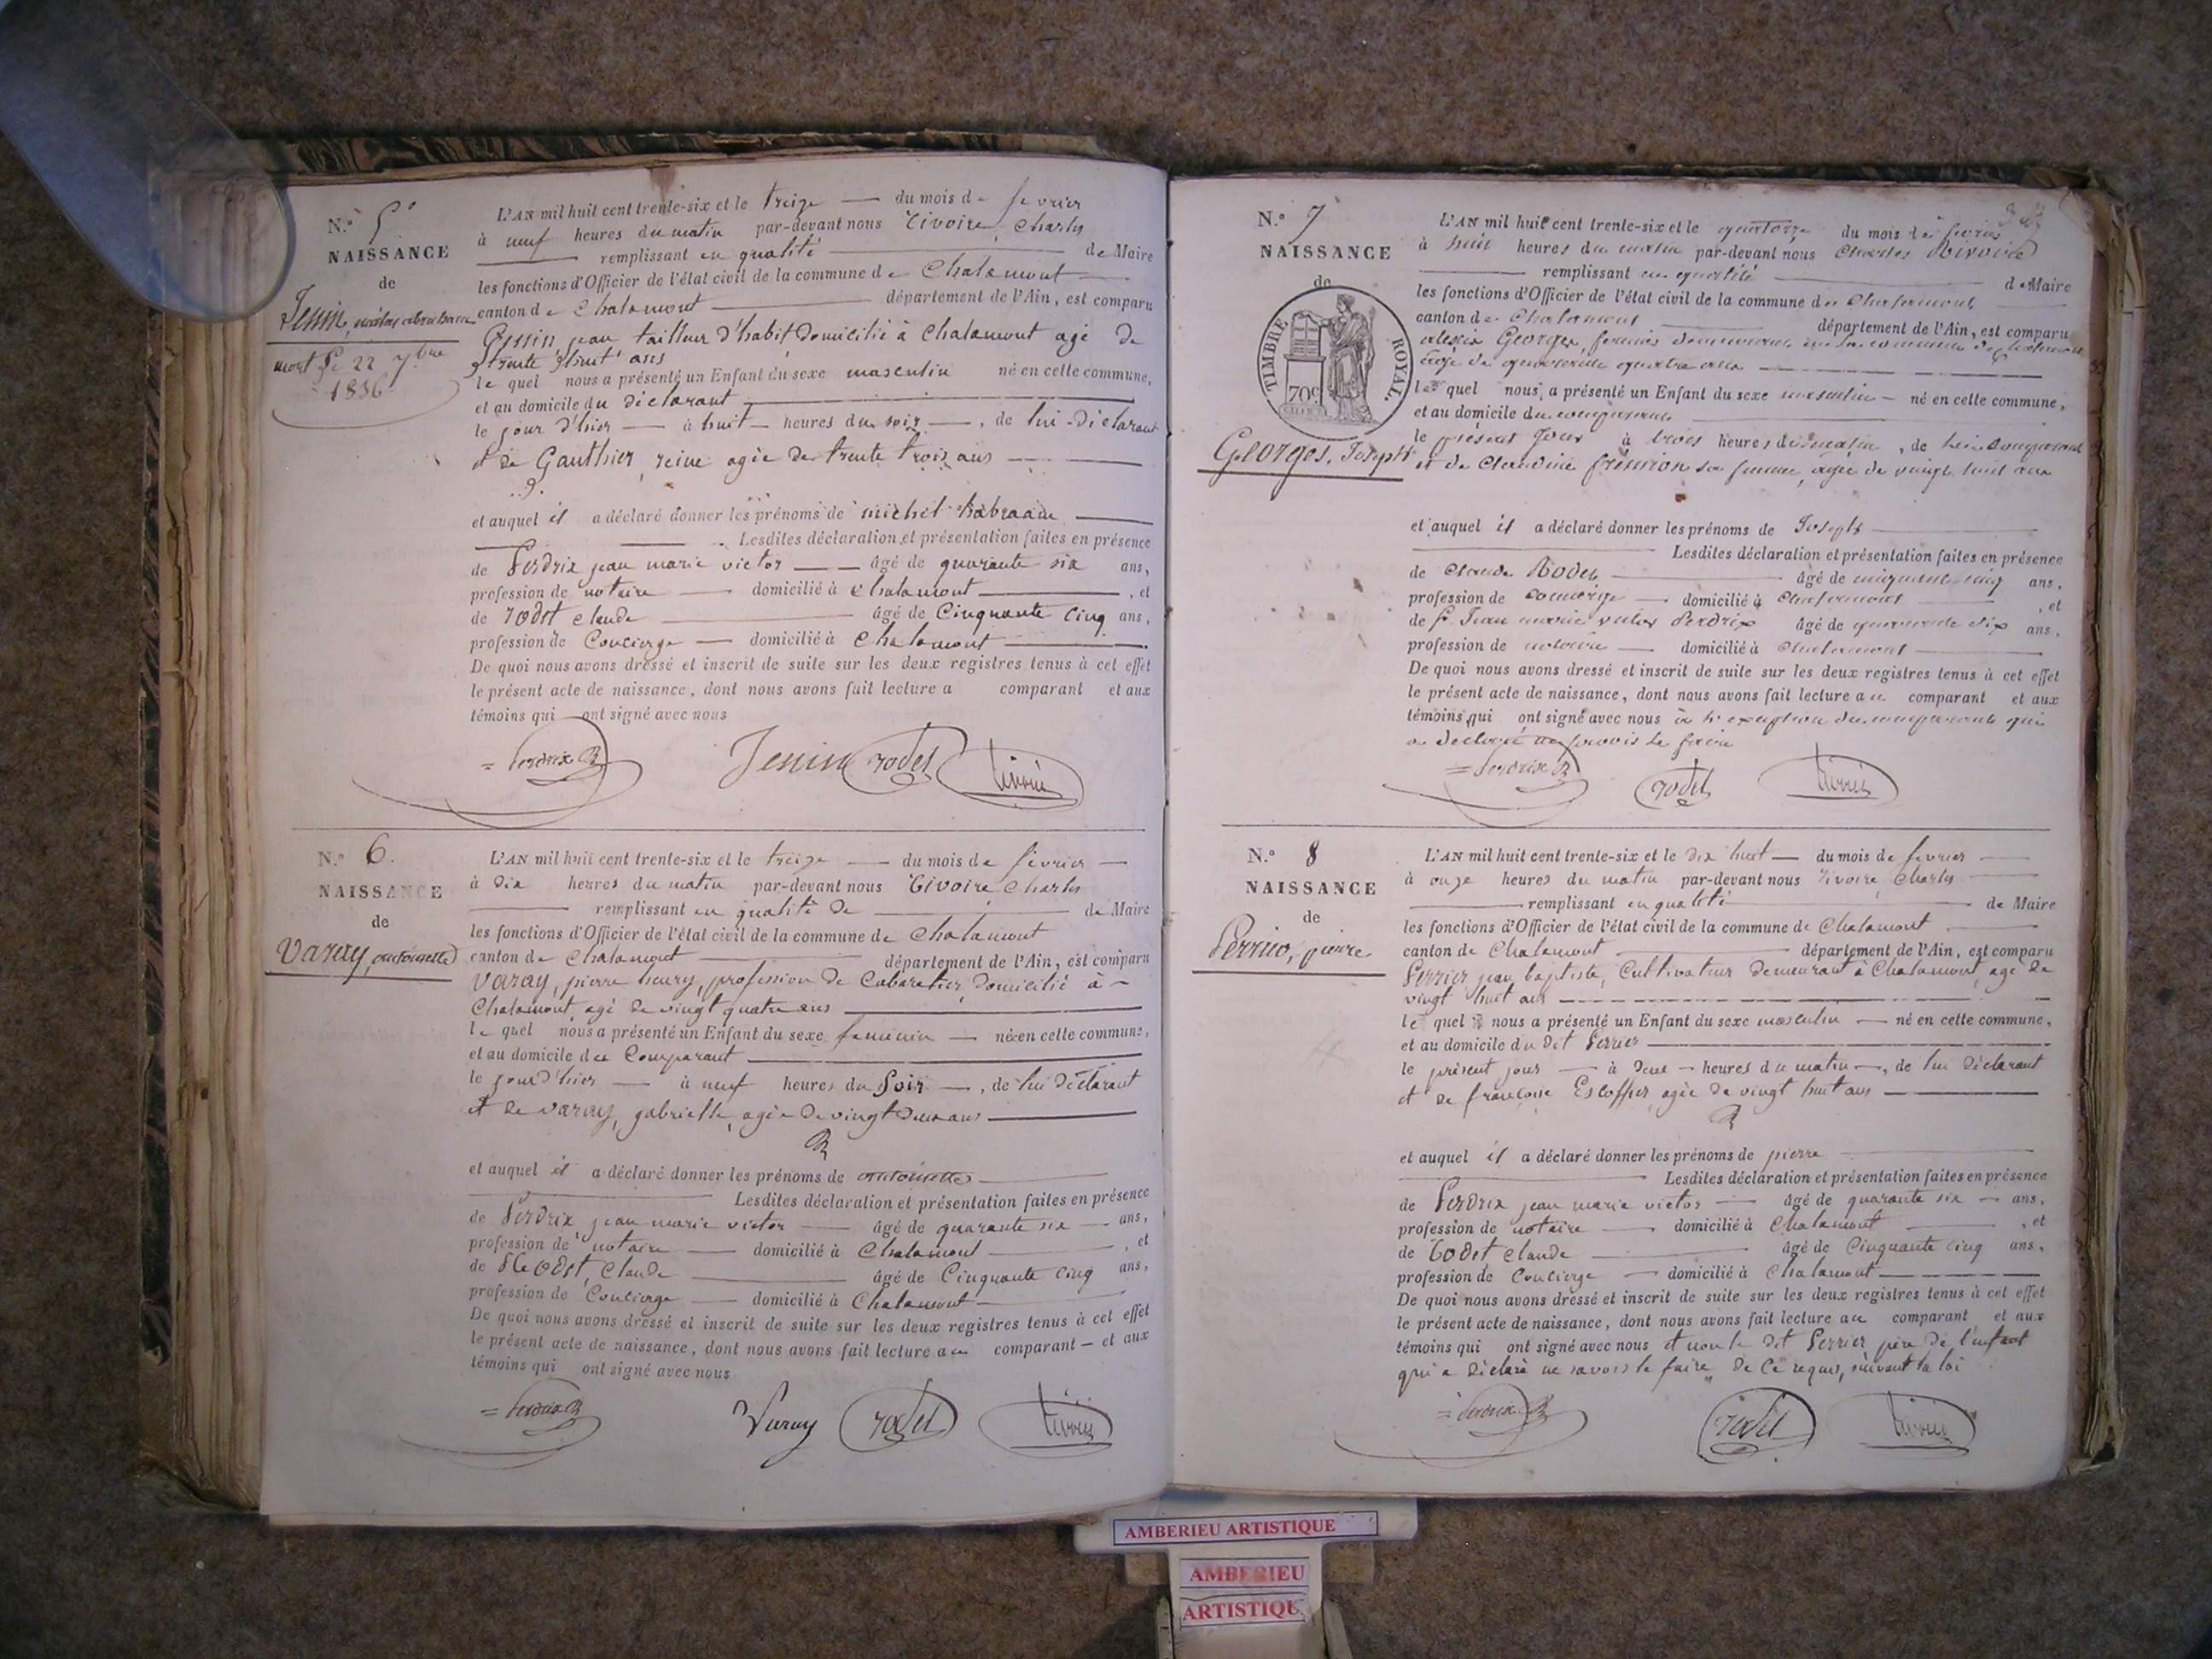 N.° 5
NAISSANCE
de
Jenin,
mort le 22 7bre
1836
L'AN mil huit cent trente-six et le treize du mois de fevrier
à neuf heures du matin par-devant nous Rivoire, Charles
remplissant en qualité de Maire
les fonctions d'Officier de l'état civil de la commune de Chalamont
canton de Chalamont département de l'Ain, est comparu
jean tailleur d'habit domicilié à Chalamont agé de
trente huit ans
le quel nous a présenté un Enfant du sexe masculin né en cette commune,
et au domicile du déclarant
le jour d'hier à huit heures du soir, de lui déclarant
et de Gauthier, reine agée de trente trois ans
et auquel il a déclaré donner les prénoms de michel
Lesdites déclaration et présentation faites en présence
de Perdrix jean marie victor âgé de quarante six ans,
profession de notaire domicilié à Chalamont, et
de rodet claude âgé de Cinquante cinq ans,
profession de Concierge domicilié à Chalamont
De quoi nous avons dressé et inscrit de suite sur les deux registres tenus à cet effet
le présent acte de naissance, dont nous avons fait lecture a comparant et aux
témoins qui ont signé avec nous
Perdrix Jenin rodet Rivoire
N.° 6.
NAISSANCE
de
Varay, antoinette
L'AN mil huit cent trente-six et le treize du mois de février
à dix heures du matin par-devant nous Rivoire Charles
remplissant en qualité de de Maire
les fonctions d'Officier de l'état civil de la commune de Chalamont
canton de Chalamont département de l'Ain, est comparu
Varay, pierre henry, profession de Cabaretier, domicilié à
Chalamont, agé de vingt quatre ans
le quel nous a présenté un Enfant du sexe feminin née en cette commune,
et au domicile du Comparant
le jour d'hier à neuf heures du Soir, de lui déclarant
et de varay, gabrielle, agée de vingt deux ans
et auquel il a déclaré donner les prénoms de antoinette
Lesdites déclaration et présentation faites en présence
de Perdrix jean marie victor âgé de quarante six ans,
profession de notaire domicilié à Chalamont, et
de Rodet, Claude âgé de Cinquante cinq ans,
profession de Concierge domicilié à Chalamont
De quoi nous avons dressé et inscrit de suite sur les deux registres tenus à cet effet
le présent acte de naissance, dont nous avons fait lecture au comparant et aux
témoins qui ont signé avec nous
Perdrix Varay rodet Rivoire
N.° 7
NAISSANCE
de
TIMBRE ROYAL.
70c
Georges, Joseph
L'AN mil huit cent trente-six et le quatorze du mois de fevrier
à huit heures du matin par-devant nous Charles Rivoire
remplissant en qualité de Maire
les fonctions d'Officier de l'état civil de la commune de Chalamont
canton de Chalamont département de l'Ain, est comparu
alexis Georges, fermier demeurant en la commune de Chalamont
âgé de quarante quatre ans
le quel nous a présenté un Enfant du sexe masculin né en cette commune,
et au domicile du comparant
le présent jour à trois heures du matin, de lui comparant
et de Claudine sa femme, agée de vingt huit ans
et auquel il a déclaré donner les prénoms de Joseph
Lesdites déclaration et présentation faites en présence
de Claude Rodet âgé de cinquante cinq ans,
profession de concierge domicilié à Chalamont, et
de Sr. Jean marie victor Perdrix âgé de quarante six ans,
profession de notaire domicilié à Chalamont
De quoi nous avons dressé et inscrit de suite sur les deux registres tenus à cet effet
le présent acte de naissance, dont nous avons fait lecture au comparant et aux
témoins qui ont signé avec nous à l'exception du comparant qui
a declaré ne savoir le faire
Perdrix rodet Rivoire
N.° 8
NAISSANCE
de
Perrier, pierre
L'AN mil huit cent trente-six et le dix huit du mois de fevrier
à onze heures du matin par-devant nous Rivoire, Charles
remplissant en qualité de Maire
les fonctions d'Officier de l'état civil de la commune de Chalamont
canton de Chalamont département de l'Ain, est comparu
Perrier jean baptiste, Cultivateur demeurant à Chalamont, agé de
vingt huit ans
le quel nous a présenté un Enfant du sexe masculin né en cette commune,
et au domicile du dit Perrier
le présent jour à deux heures du matin, de lui déclarant
et de françoise Escoffier, agée de vingt huit ans
et auquel il a déclaré donner les prénoms de pierre
Lesdites déclaration et présentation faites en présence
de Perdrix jean marie victor âgé de quarante six ans,
profession de notaire domicilié à Chalamont, et
de Rodet Claude âgé de Cinquante cinq ans,
profession de Concierge domicilié à Chalamont
De quoi nous avons dressé et inscrit de suite sur les deux registres tenus à cet effet
le présent acte de naissance, dont nous avons fait lecture au comparant et aux
témoins qui ont signé avec nous et non le dit Perrier père de l'enfant
qui a déclaré ne savoir le faire de ce requis, suivant la loi
Perdrix rodet Rivoire
AMBERIEU ARTISTIQUE
AMBERIEU
ARTISTIQUE